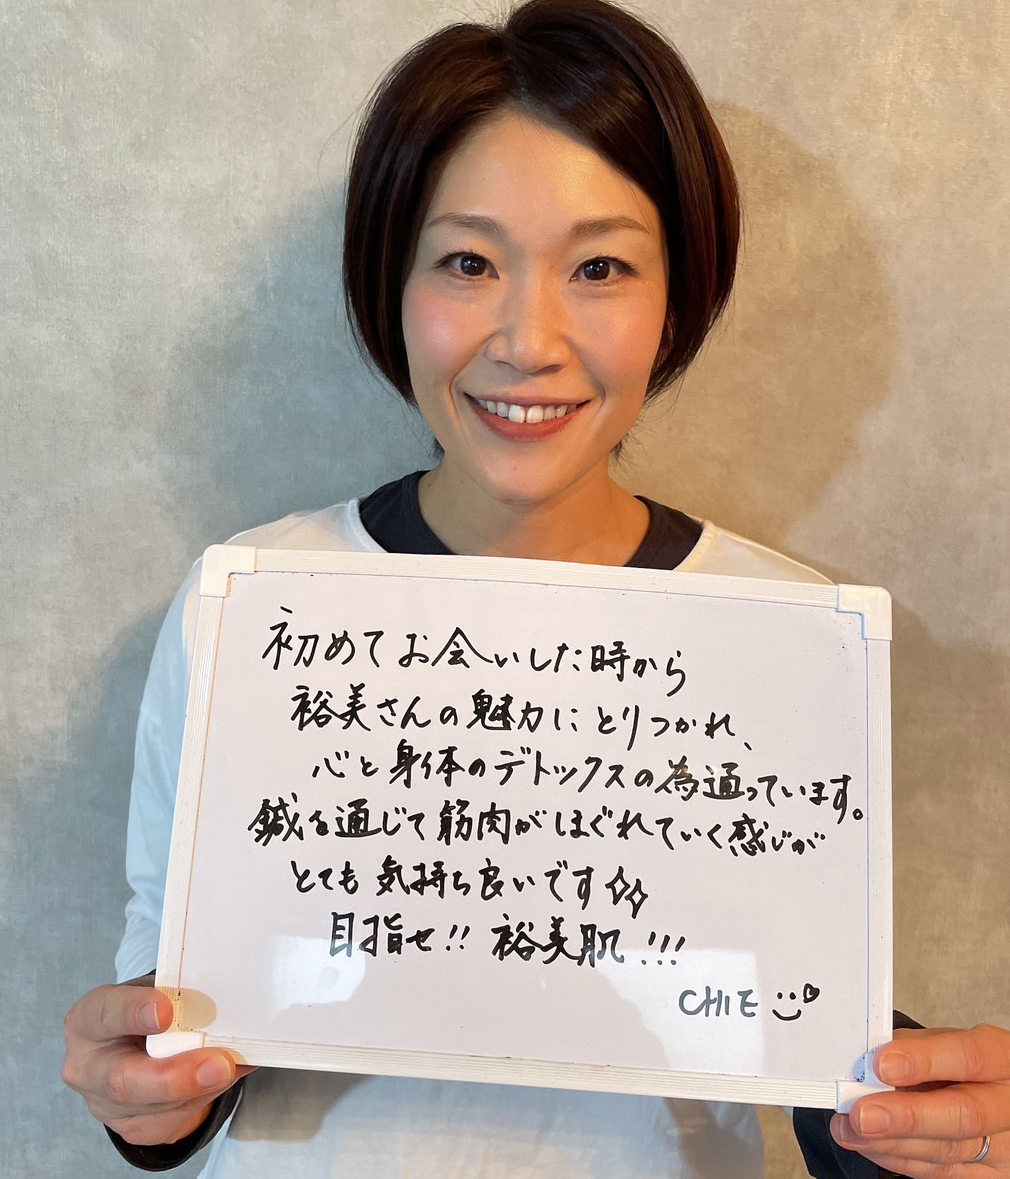 初めてお会いした時から
裕美さんの魅力にとりつかれ、
心と身体のデトックスの為通っています。
鍼を通じて筋肉がほぐれていく感じが
とても気持ち良いです
目指せ!! 裕美肌!!!
CHIE